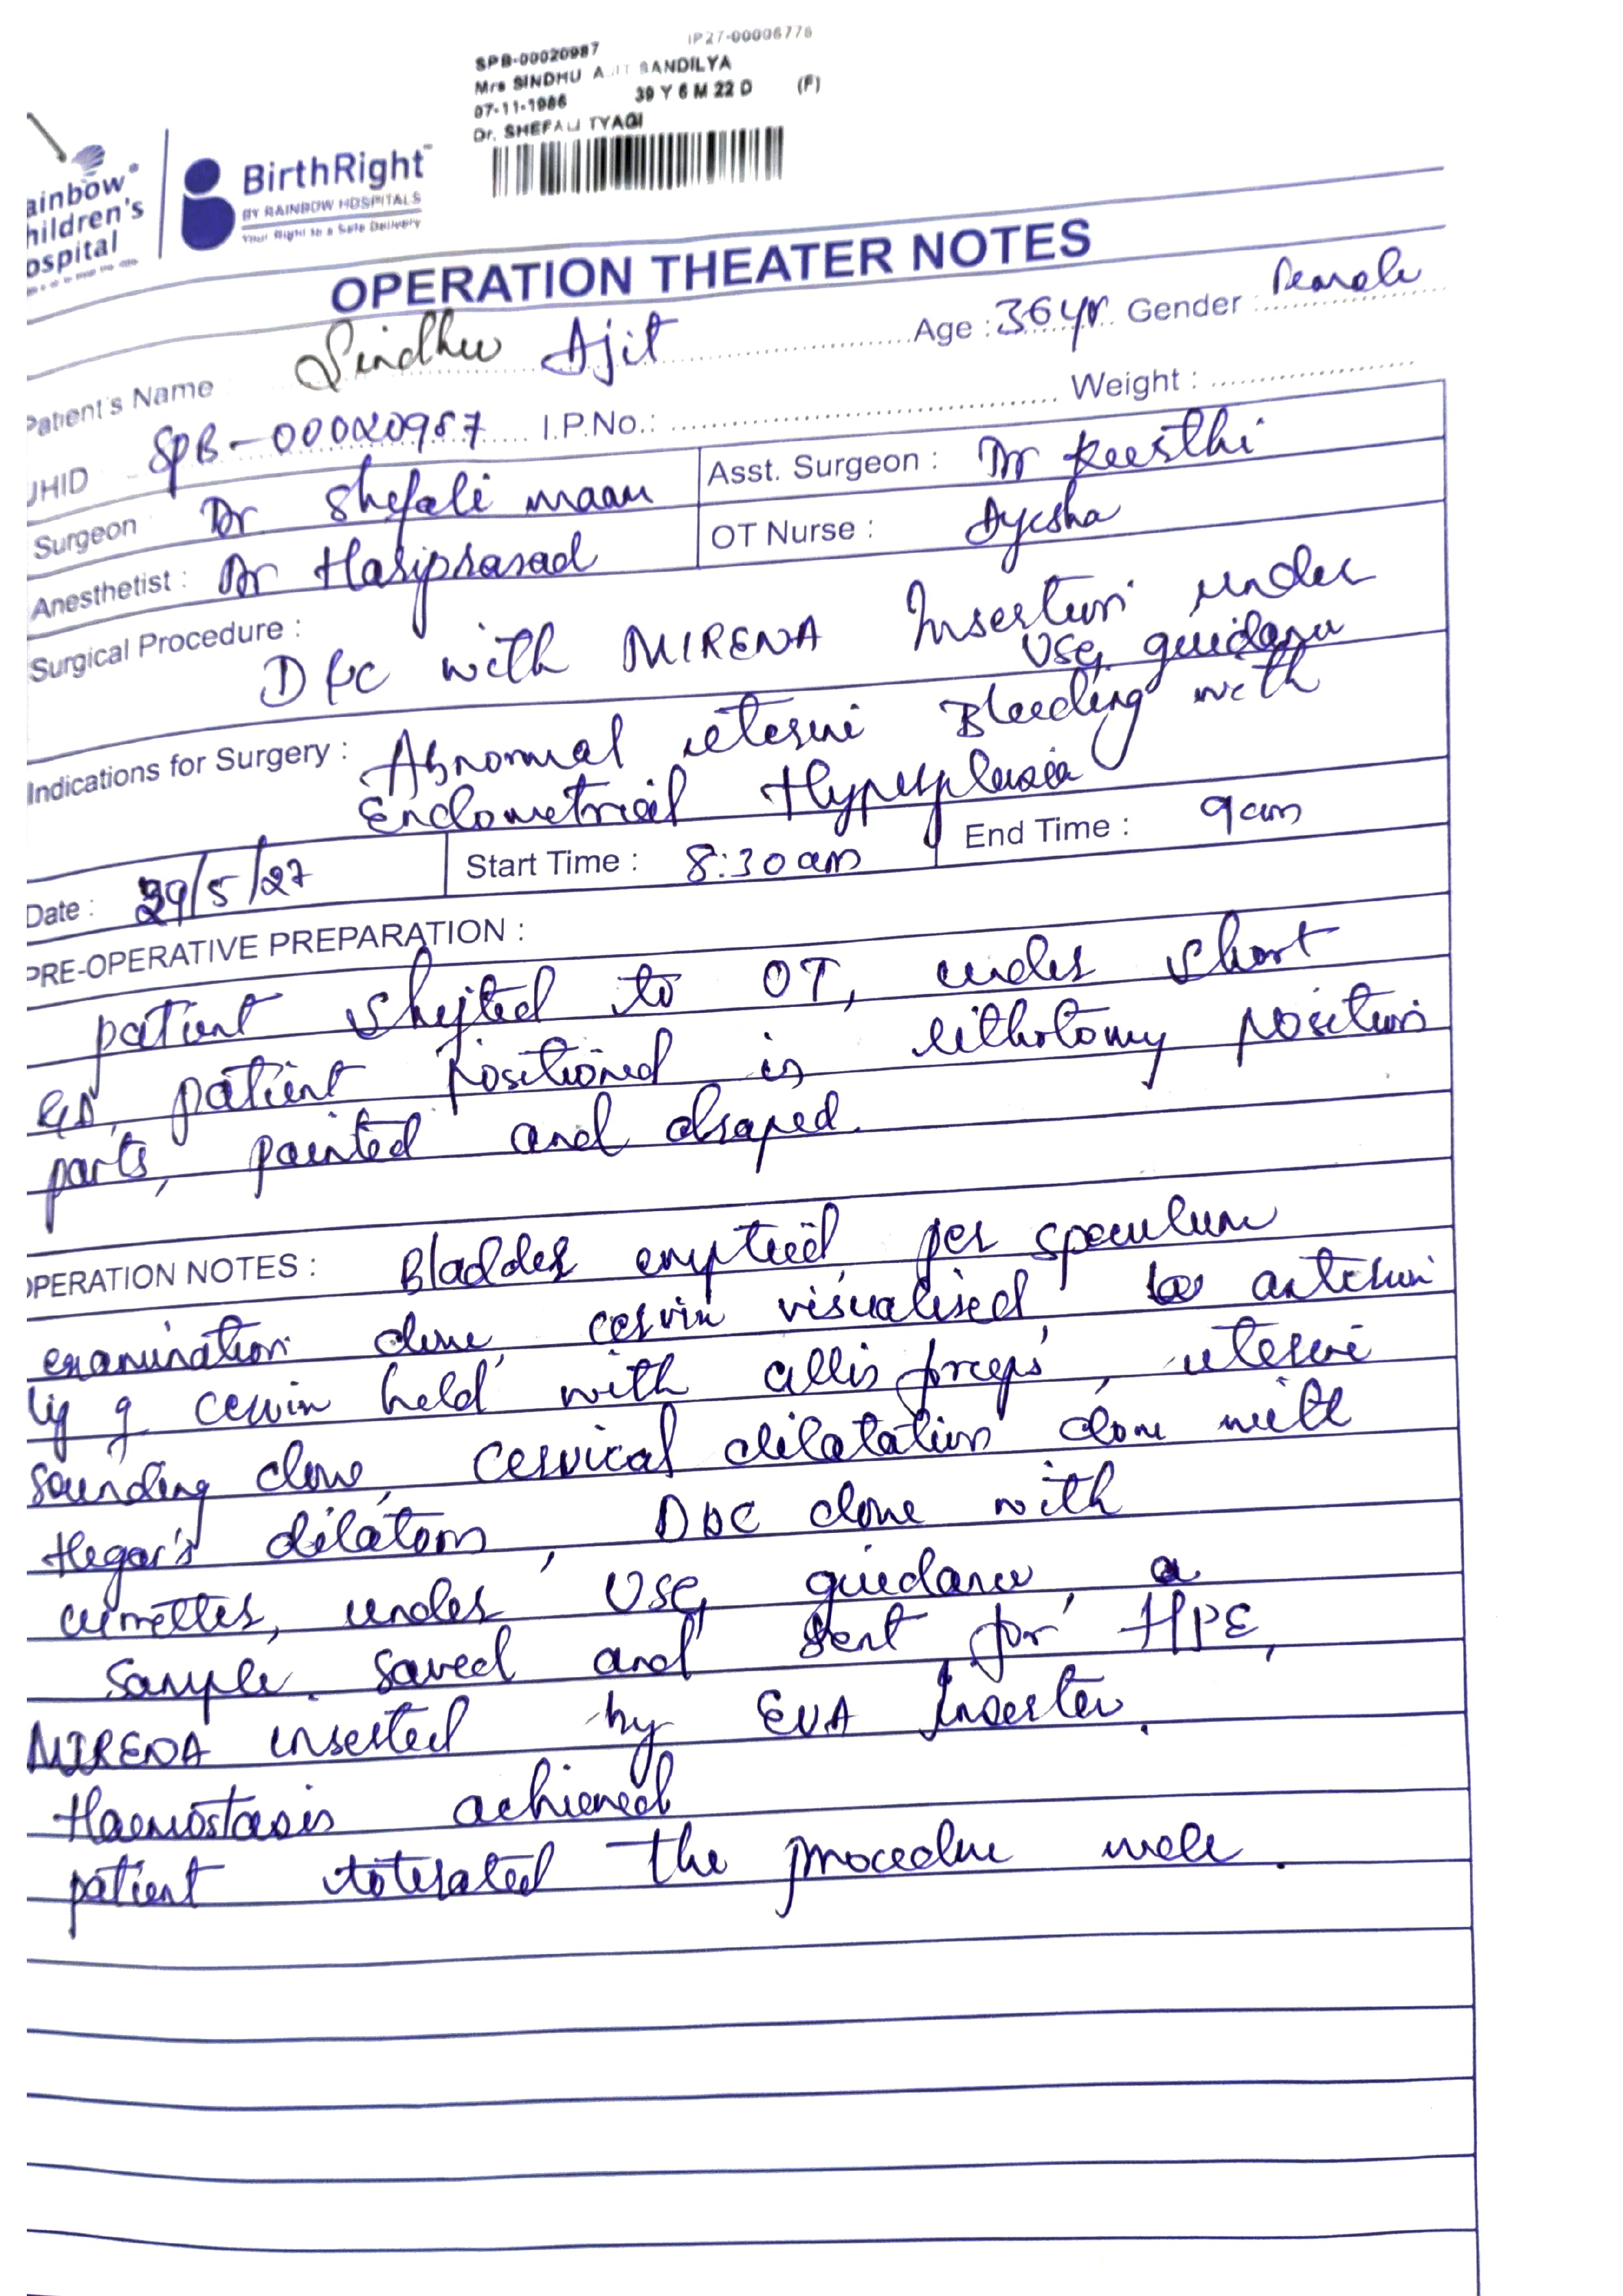 SPB-00020987 IP27-00006776
Mrs SINDHU AJIT SANDILYA
07-11-1986 39 Y 6 M 22 D (F)
Dr. SHEFALI TYAGI
ainbow®
hildren's
ospital
BirthRight™
BY RAINBOW HOSPITALS
Your Right to a Safe Delivery
OPERATION THEATER NOTES
Patient's Name Sindhu Ajit Age : 36 yr Gender : Female
UHID SPB-00020987 I.P.No.: Weight :
Surgeon Dr Shefali maam Asst. Surgeon : Dr Keerthi
Anesthetist : Dr Hariprasad OT Nurse : Ayesha
Surgical Procedure : D&C with MIRENA Insertion under
USG guidance
Indications for Surgery : Abnormal uterine Bleeding with
Endometrial Hyperplasia
Date : 29/5/27 Start Time : 8:30am End Time : 9am
PRE-OPERATIVE PREPARATION :
patient shifted to OT, under short
GA, patient positioned in lithotomy position
parts, painted and draped.
OPERATION NOTES : Bladder emptied, per speculum
examination done, cervix visualised, anterior
lip of cervix held with allis forceps, uterine
sounding done, cervical dilatation done with
Hegar's dilators, D&C done with
curettes, under USG guidance, a
sample saved and sent for HPE,
MIRENA inserted by EVA Inserter.
Haemostasis achieved
patient tolerated the procedure well.